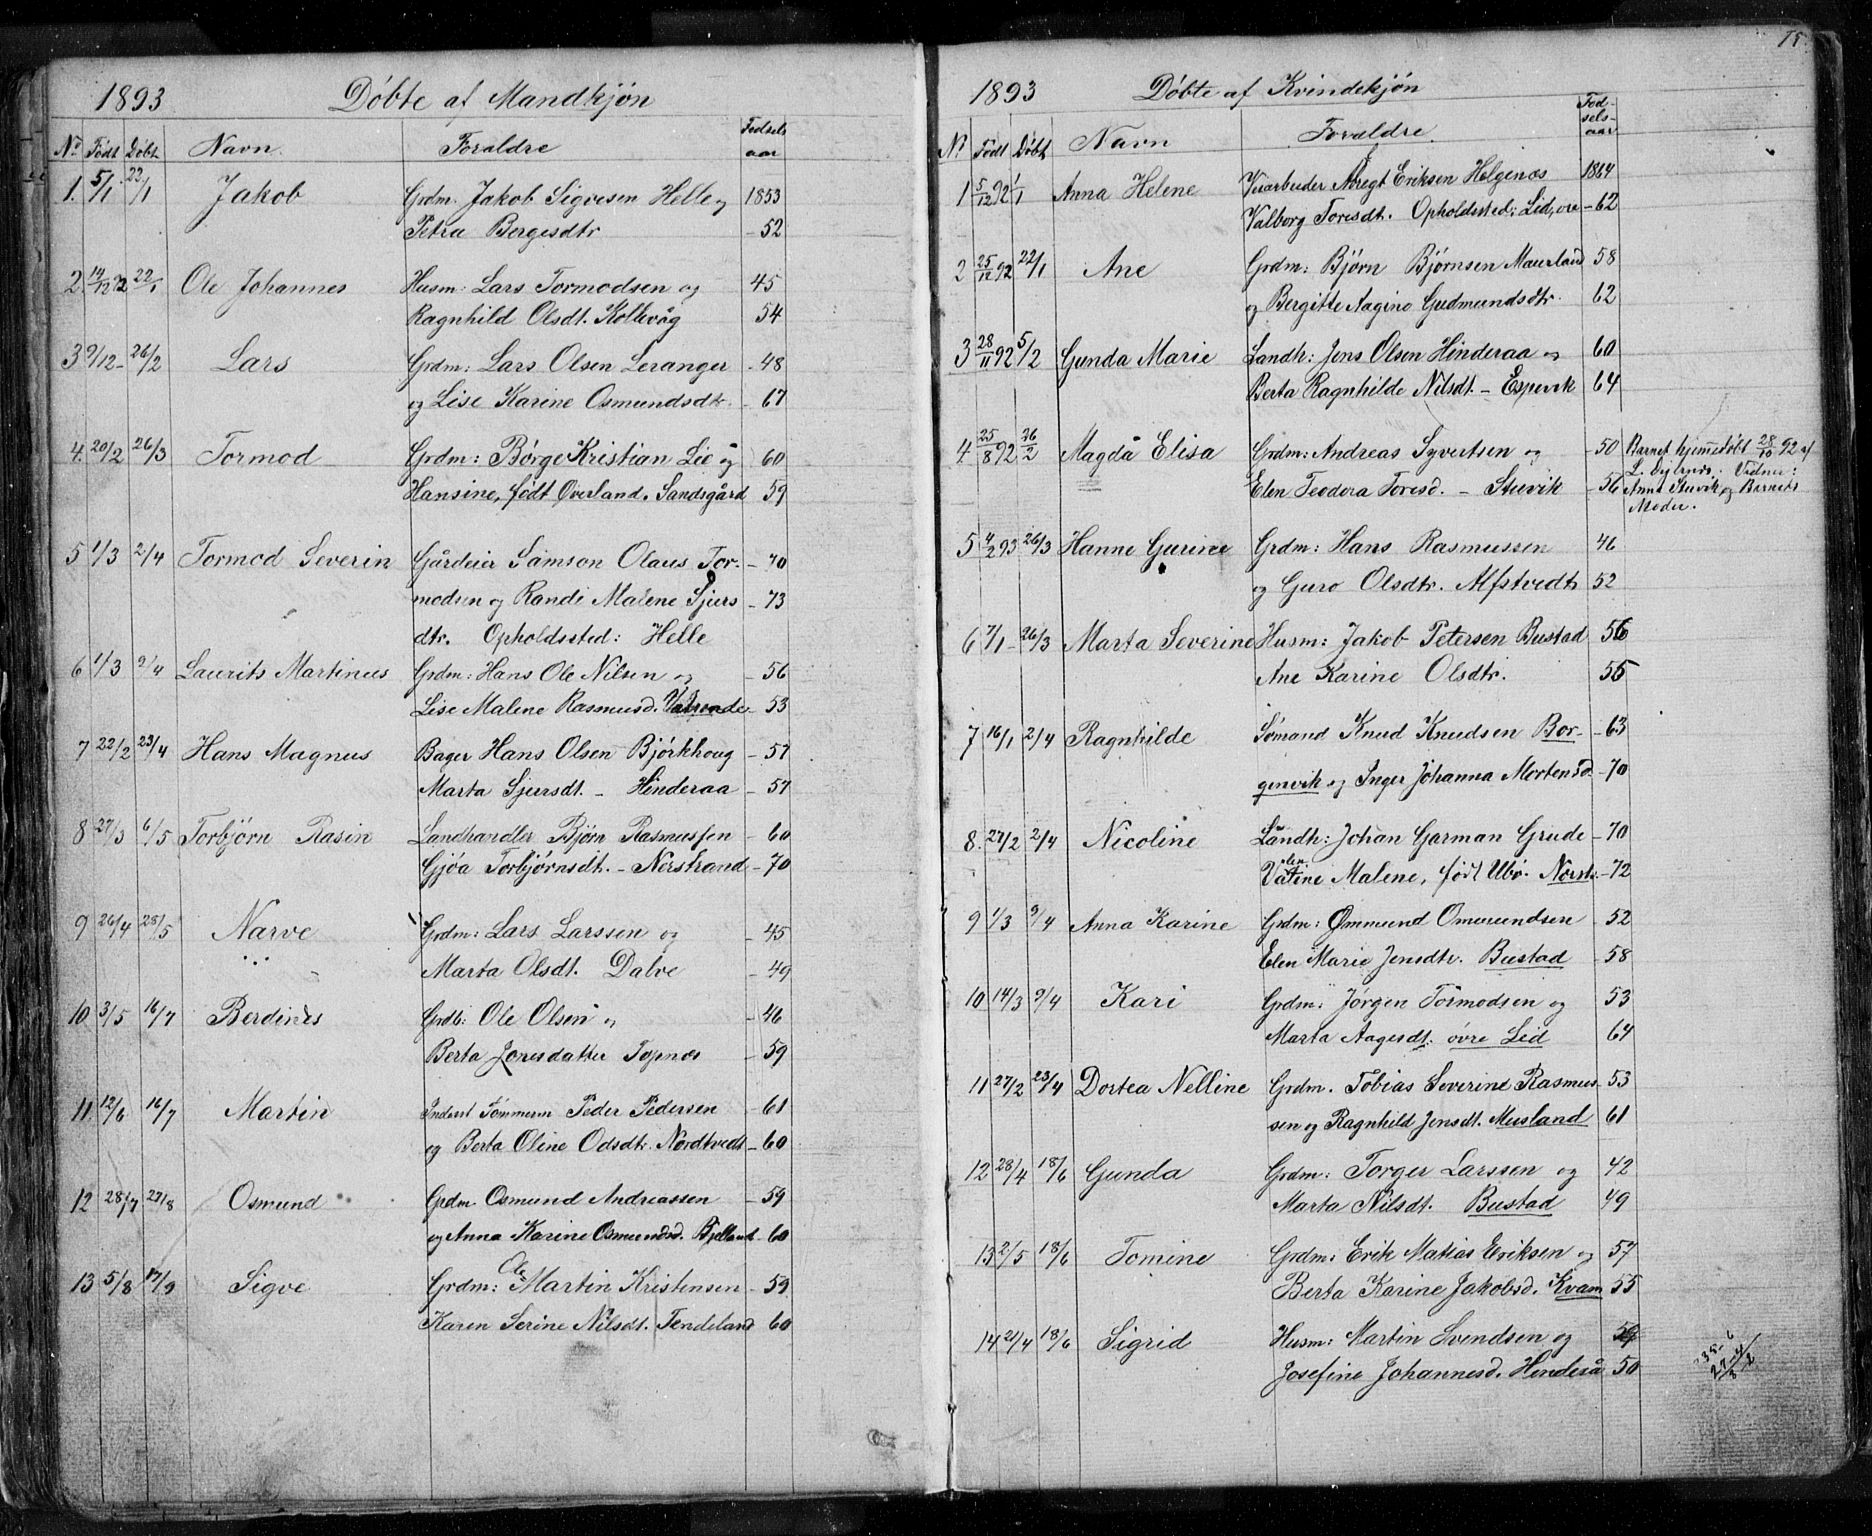 1893 Døbte af Mandkjøn
Nr. Født Døbt Navn Foræeldre Fødsels
aar
1. 5/1 22/1 Jakob Grdm. Jakob Sigvesen Helle og 1853
Petra Bergesdtr - 52
2. 14/12 92 22/1 Ole Johannes Husm: Lars Tormodsen og 45
Ragnhild Olsdt. Kollevåg 54
3 9/12- 26/2 Lars Grdm: Lars Olsen Leranger - 48
og Lise Karine Osmundsdtr. - 67
4. 20/2 26/3 Tormod Grdm: Børge Kristian Lie og 60
Hansine, født Øverland. Sandsgård 59
5 1/3 2/4 Tormod Severin Gårdeier Samson Olaus Tor- - 70
modsen og Randi Malene Sjurs - 73
dtr. Opholdssted: Helle
6 1/3 9/4 Laurits Martinus Grdm: Hans Ole Nilsen og - 56
Lise Malene Rasmusd. - 53
7 22/2 23/4 Hans Magnus Bager Hans Olsen Bjórkhoug - 57
Marta Sjursdt. - Hinderaa - 57
8 27/3 6/5 Torbjørn Rasin Landhandler Bjørn Rasmussen - 60
Gjøa Torbjørnsdt. - Nerstrand - 70
9 26/4 28/5 Narve Grdm: Lars Larssen og - 45
Marta Olsdt. Dalve - 49
10. 3/5 16/7 Berdines Grdb: Ole Olsen og - 46
Berta Jonesdatter Topnes - 59
11. 12/6 16/7 Martin Inderst Tømmerm Peder Pedersen - 61
og Berta Oline Odsdtr. Nordtvedt - 60
12 28/7 27/8 Osmund Grdm Osmund Andreassen - 59
og Anna Karine Osmundsd. Bjelland - 60
13 5/8 17/9 Sigve Grdm: Ole Martin Kristensen - 59
Karen Serine Nilsdt. Tendeland 60
15
1893 Døbte af Kvindekjøn
Nr Født Døbt Navn Foræeldre Fød-
sels-
aar
1 5/12 92 1/1 Anna Helene Veiarbeider Eriksen Helgenæs 1864
Valborg Toresdt. Opholdssted: Lid, øre - 62
2 25/12 92 22/1 Ane Grdm: Bjørn Bjørnsen Maurland 58
og Bergitte Aagine Gudmundsdtr. 62
3 28/11 92 5/2 Gunda Marie Landh: Jens Olsen Hinderaa og 60
Berta Ragnhilde Nilsdt. - Espevik 64
4. 25/8 92 26/2 Magda Elisa Grdm: Andreas Syvertsen og 50 Barnet hjemmedøbt 28/10 92 af
Elen Teodora Toresd. - Stuvik - 56 Vidner:
Anna Stuvik og Barnets
Moder.
5 4/2 93 26/3 Hanne Gurine Grdm: Hans Rasmussen 46
og Guro Olsdtr. Alfstvedt 52
6 7/1- 26/3 Marta Severine Husm: Jakob Petersen Bustad 56
Ane Karine Olsdtr. 55
7 16/1 2/4 Ragnhilde Sømand Knud Knudsen Bor- - 63
genvik og Inger Johanna Mortensd. - 70
8. 27/2 2/4 Nicoline Landh: Johan Garman Grude - 70
Valentine Malene, født Ubø. Norst. - 72
9 1/3 9/4 Anna Karine Grdm: Ommund Omundsen 52
Elen Marie Jensdtr. Bustad - 58
10 14/3 9/4 Kari Grdm: Jórgen Tormodsen og 53
Marta Aagesdt. óvre Lid 64
11 27/2 23/4 Dortea Nelline Grdm. Tobias Severine Rasmus- 53
sen og Ragnhild Jensdt. Musland 61
12 28/4 18/6 Gunda Grdm: Torger Larssen og 42
Marta Nilsdt. Bustad 49
13 2/5 18/6 Tomine Grdm: Erik Matias Eriksen og 57
Berta Karine Jakobsd. Kvam 55
14 21/4 18/6 Sigrid Husm: Martin Svendsen og 59
Josefine Johannesd. Hinderå 50